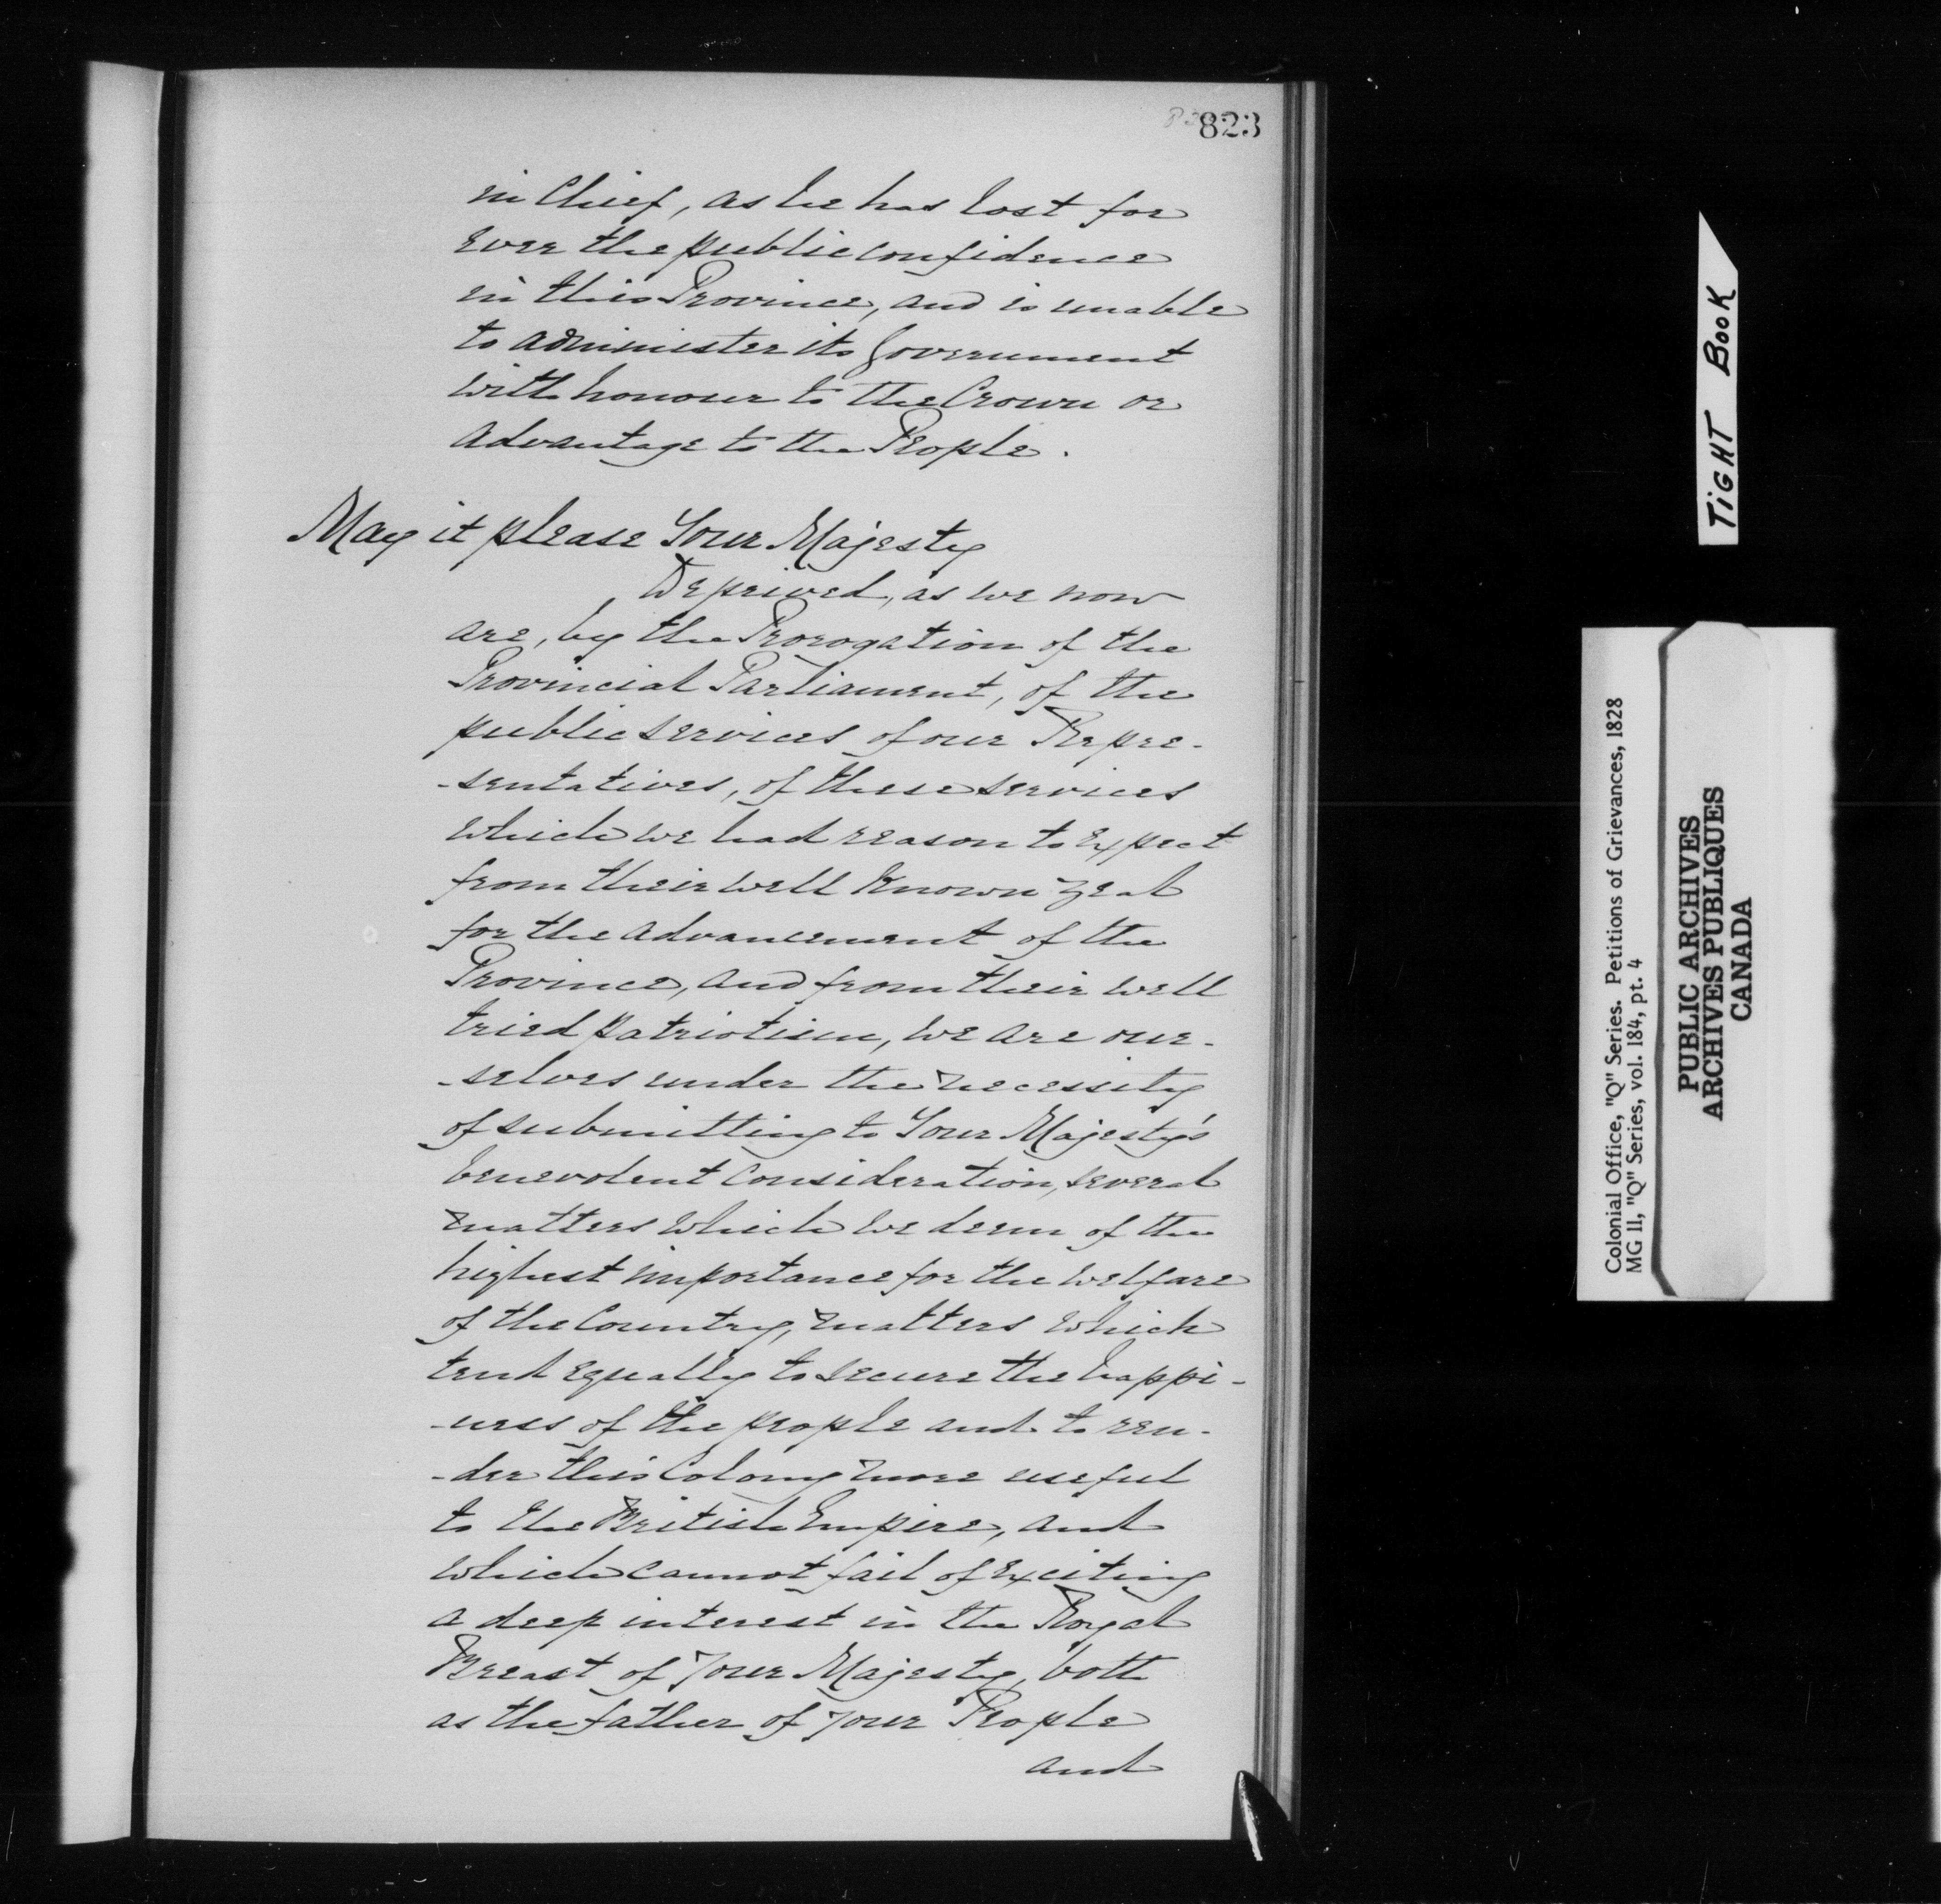 823
in Chief, as he has lost for
ever the public confidence
in this Province, and is unable
to administer its Government
with honour to the Crown or
advantage to the People.
May it please Your Majesty
Deprived, as we now
are, by the Prorogation of the
Provincial Parliament, of the
public services of our Repre-
-sentatives, of these services
which we had reason to expect
from their well known zeal
for the advancement of the
Province, and from their well
tried patriotism, we are our-
-selves under the necessity
of submitting to Your Majesty's
benevolent consideration, several
matters which we deem of the
highest importance for the welfare
of the Country, matters which
tend equally to secure the happi-
-ness of the people and to ren-
-der this Colony more useful
to the British Empire, and
which cannot fail of exciting
a deep interest in the Royal
Breast of Your Majesty, both
as the father of your People
and
TIGHT BOOK
Colonial Office, "Q" Series. Petitions of Grievances, 1828
MG 11, "Q" Series, vol. 184, pt. 4
PUBLIC ARCHIVES
ARCHIVES PUBLIQUES
CANADA